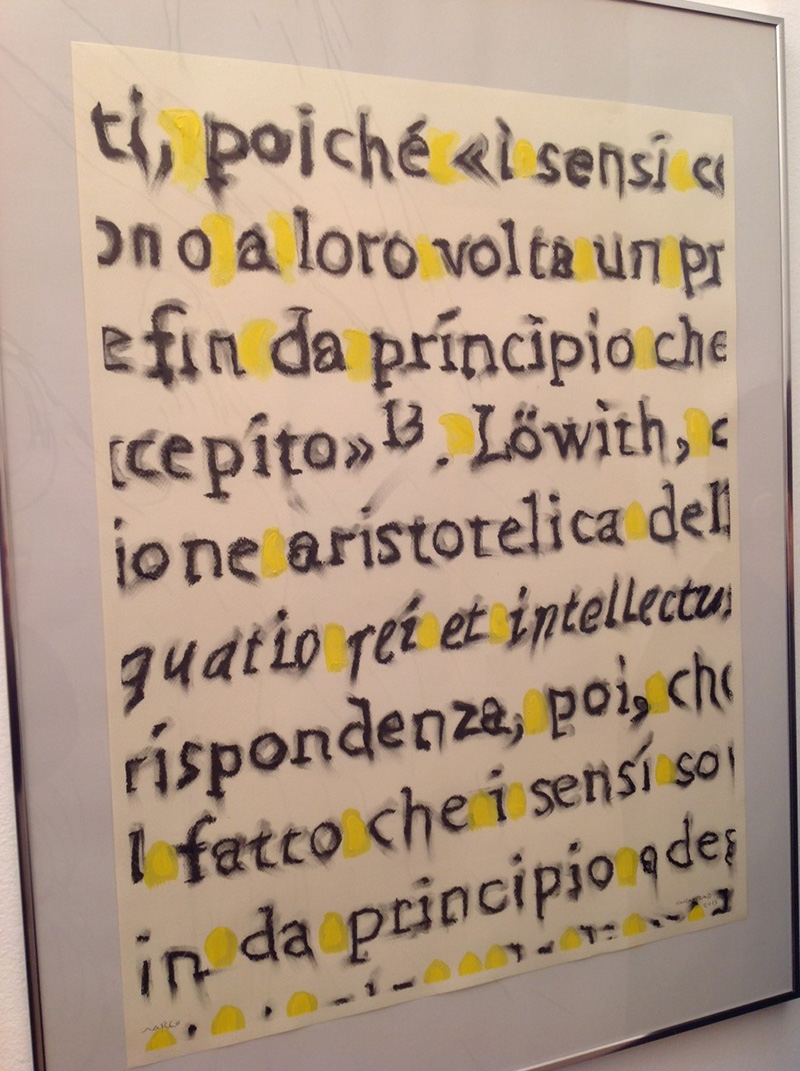 ti, poiché «i sensi co
ono a loro volta un pr
e fin da principio che
ccepito»13. Löwith, c
ione aristotelica dell
quatio rei et intellectus
rispondenza, poi, che
l fatto che i sensi so
in da principio ades
MARCO